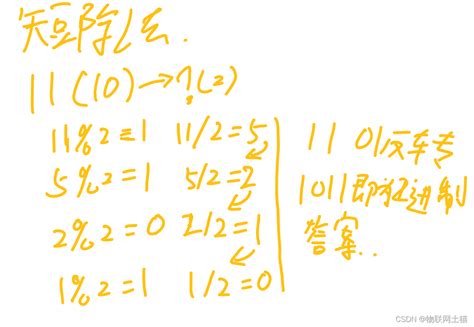 短除法.
11(10)→?(2)
11%2=1 11/2=5
5%2=1 5/2=2
2%2=0 2/2=1
1%2=1 1/2=0
1101反转
1011即社进制
答案..
CSDN @物联网土猫